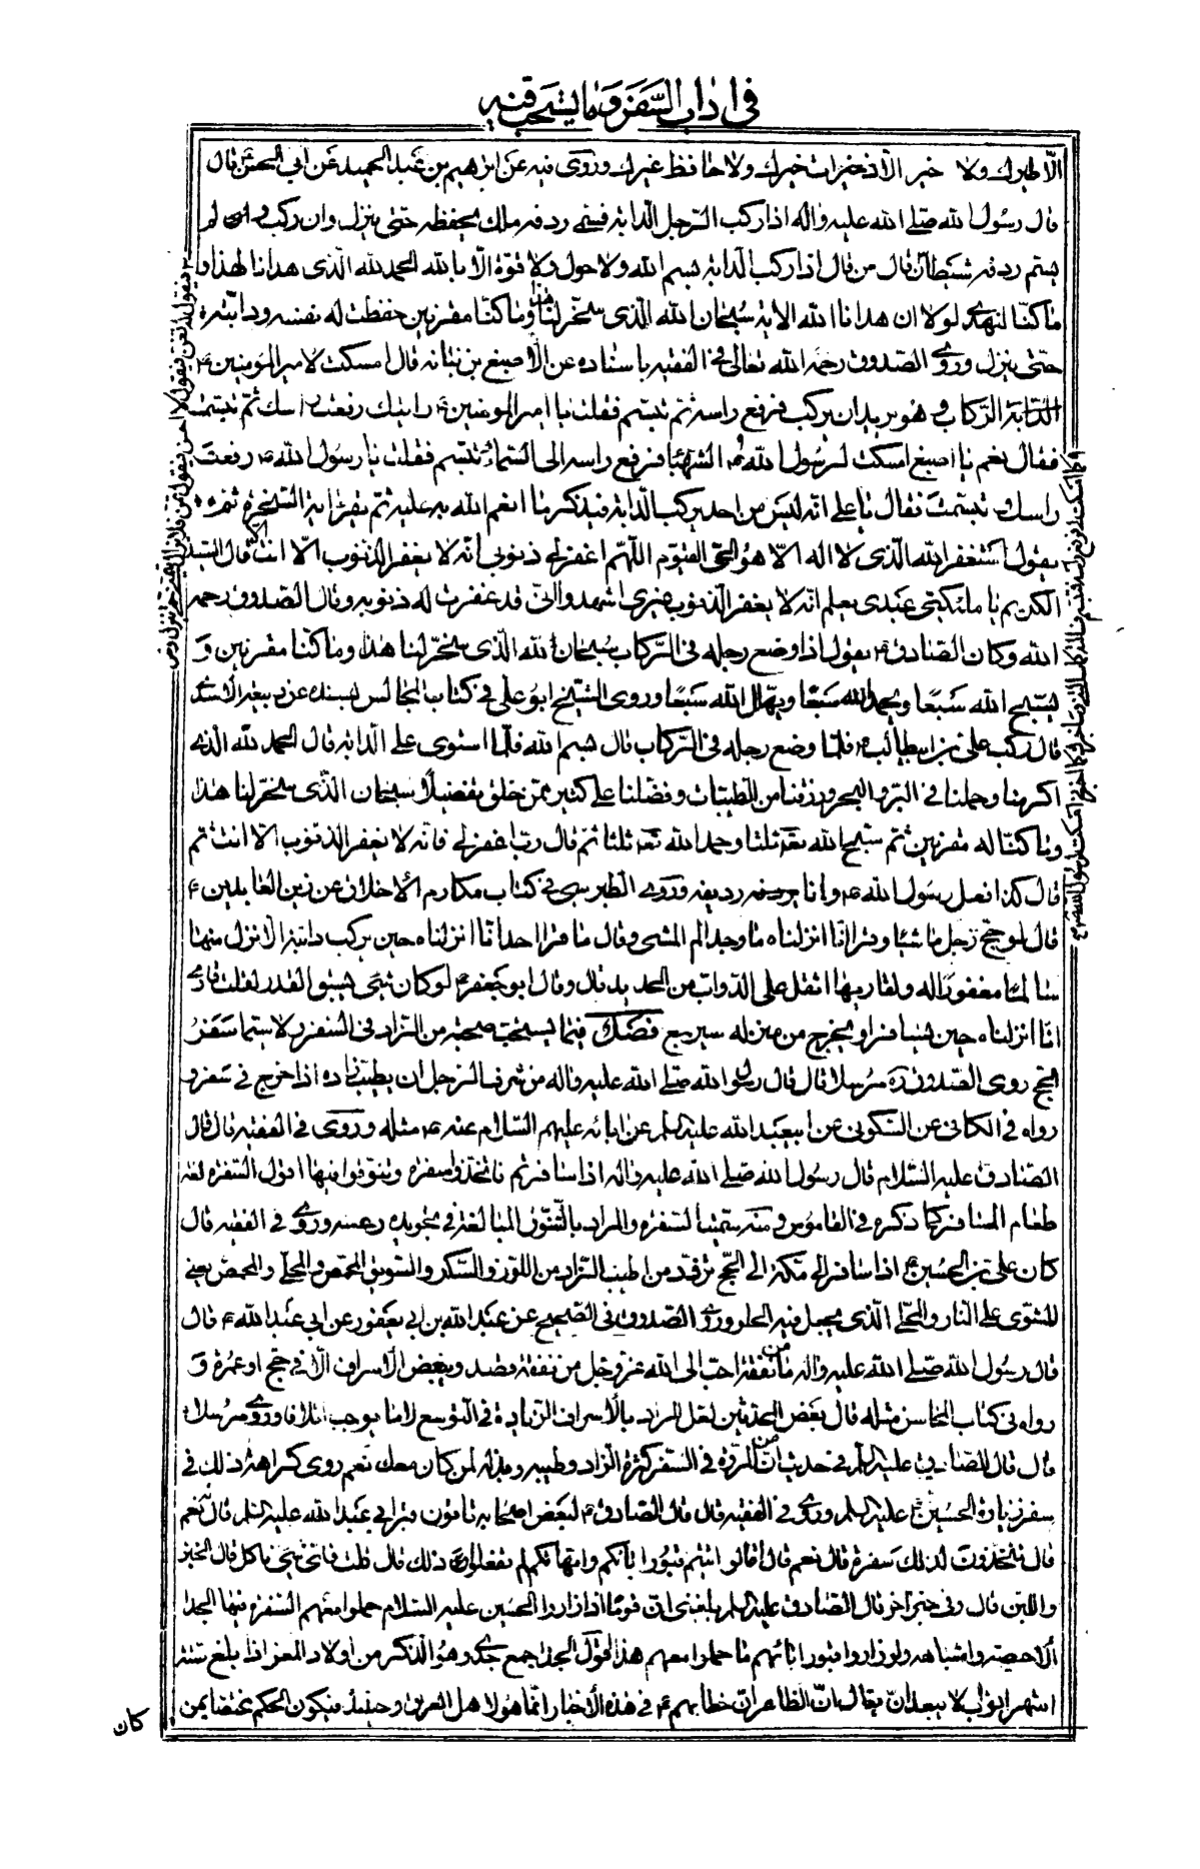 في اداب السفر وما يستحب فيه
الّا طيرك ولا خير الّا خيرك ولا حافظ غيرك وروى فيه عن ابرهيم بن عبد الحميد عن ابي الحسن قال
قال رسول الله صلى الله عليه واله اذا ركب الرّجل الدّابة فسمّى ردفه ملك يحفظه حتى ينزل وان ركب ولم
يسم ردفه شيطان قال من قال اذا ركب الدّابة بسم الله ولا حول ولا قوّة الّا بالله الحمد لله الّذى هدانا لهذا و
ما كنّا لنهتدى لولا ان هدانا الله الاية سُبحان الله الّذى سخّر لنا هذا وما كنّا له مقرنين حفظت له نفسه ودابّته
حتى ينزل وروى الصّدوق رحمه الله تعالى في الفقيه باسناده عن الأصبغ بن نباته قال امسكت لامير المؤمنين ع
الدّابة الرّكاب وهو يريد ان يركب فرفع راسه ثم تبسّم فقلت يا امير المؤمنين ع رايتك رفعت راسك ثم تبسّمت
فقال نعم يا اصبغ امسكت لرسول الله ص الشهباء فرفع راسه الى السّماء وتبسّم فقلت يا رسول الله ص رفعت
راسك وتبسّمت فقال يا على انّه ليس من احد يركب الدّابة فيذكر ما انعم الله به عليه ثم يقرا اية السّخرة ثم
يقول استغفر الله الّذى لا اله الّا هو الحى القيّوم اللّهم اغفر لى ذنوبى انّه لا يغفر الذّنوب الّا انت الّا قال السّيد
الكريم يا ملائكتى عبدى يعلم انّه لا يغفر الذّنوب غيرى اشهدوا انّى قد غفرت له ذنوبه وقال الصّدوق رحمه
الله وكان الصّادق ع يقول اذا وضع رجله فى الرّكاب سُبحان الله الّذى سخّر لنا هذا وما كنّا له مقرنين و
يسبّح الله سَبعًا ويحمد الله سَبعًا ويهلّل الله سَبعًا وروى الشيخ ابو على فى كتاب المجالس بسنده عن
قال ركب علىّ بن ابيطالب ع فلمّا وضع رجله فى الرّكاب قال بسم الله فلمّا استوى على الدّابة قال الحمد لله الّذى
اكرمنا وحملنا فى البرّ والبحر ورزقنا من الطّيبات وفضّلنا على كثير ممّن خلق تفضيلًا سبحان الّذى سخّر لنا هذا
وما كنّا له مقرنين ثم سبّح الله تع ثلثا وحمد الله تع ثلثا ثم قال ربّ اغفر لى فانّه لا يغفر الذّنوب الّا انت ثم
قال كذا فعل رسول الله ص وانا رديفه وروى الطبرسى فى كتاب مكارم الأخلاق عن زين العابدين ع
قال لو حجّ رجل ماشيا وقرا انّا انزلناه ما وجد الم المشى وقال ما قرا احد انّا انزلناه حين يركب دابّته الّا نزل منها
سالمًا مغفورًا له ولقاريها اثقل على الدّواب من الحديد قال وقال ابو جعفر ع لو كان شئ يسبق القدر لقلت قارى
انّا انزلناه حين يسافر او يخرج من منزله سيرجع فصل فيما يستحبّ صحبته من الزّاد فى السّفر لا سيّما سفر
الحج روى الصّدوق ره مرسلا قال قال رسول الله صلى الله عليه واله من شرف الرّجل ان يطيب زاده اذا خرج فى سفر و
رواه فى الكافى عن السّكونى عن ابيعبد الله عليه السلم عن ابائه عليهم السّلام عنه ص مثله وروى فى الفقيه قال قال
الصّادق عليه السّلام قال رسول الله صلى الله عليه واله اذا سافرتم فاتخذوا سفرة وتنوّقوا فيها اقول السّفرة لغة
طعام المسافر كما ذكره فى القاموس ومنه سمّيت السّفرة والمراد بالتّنوّق المبالغة فى تجويده وروى فى الفقيه قال
كان علىّ بن الحسين ع اذا سافر الى مكّة الى الحجّ تزوّد من اطيب الزّاد من اللّوز والسّكر والسّويق المحمّص والمحلّى والمحمّص يعنى
المشوّى على النار والمحلّى الّذى يجعل فيه الحلو وروى الصّدوق فى الصّحيح عن عبد الله بن ابى يعفور عن ابى عبد الله ع قال
قال رسول الله صلى الله عليه واله ما من نفقة احبّ الى الله عزّوجل من نفقة قصد ويبغض الأسراف الّا فى حج او عمرة و
رواه فى كتاب المحاسن مثله قال بعض المحدّثين لعل المراد بالأسراف الزّيادة فى التّوسع لا ما يوجب اتلافا وروى مرسلا
قال قال الصّادق عليه السلم فى حديث انّ من المروّة فى السّفر كثرة الزّاد وطيبه وبذله لمن كان معك نعم روى كراهة ذلك فى
سفر زيارة الحسين ع عليه السلم وروى فى الفقيه قال قال الصّادق ع لبعض اصحابه تاتون قبر ابى عبد الله عليه السلم قال له نعم
قال تتّخذون لذلك سفرة قال نعم قال اما لو اتيتم قبور ابائكم وامهاتكم لم تفعلوا ذلك قال قلت فاىّ شئ ناكل قال الخبز
واللبن قال وفى خبر اخر قال الصّادق عليه السلم بلغنى انّ قومًا اذا زاروا الحسين عليه السّلام حملوا معهم السّفرة فيها الجدا
والاخبصة واشباهه ولو زاروا قبور ابائهم ما حملوا معهم هذا اقول الجداء جمع جدى وهو الذّكر من اولاد المعز اذا بلغ ستة
اشهر اقول لا يبعد ان يقال انّ الظاهر انّ خطابهم ع فى هذه الأخبار انّما هو لاهل العراق وحينئذ فيكون الحكم مختصا بمن
كان